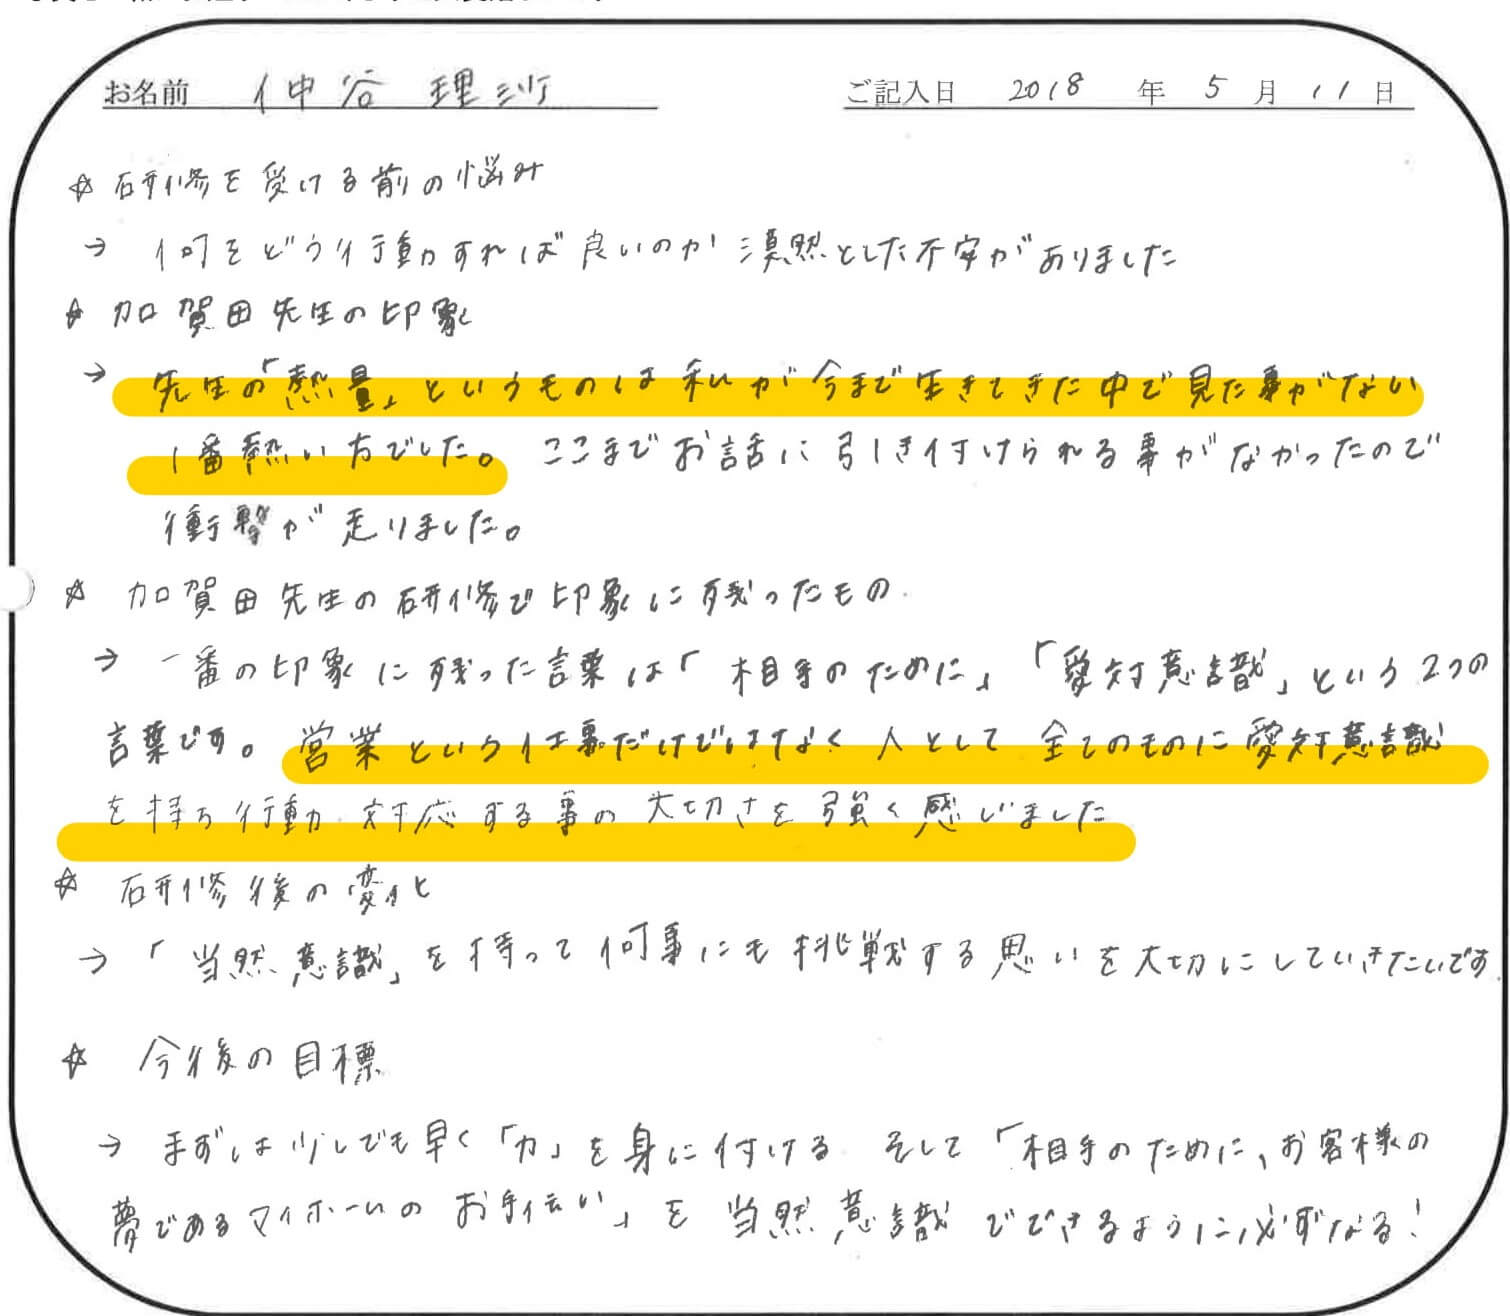 お名前 仲谷 理沙 ご記入日 2018 年 5 月 11 日
☆ 研修を受ける前の悩み
→ 何をどう行動すれば良いのか 漠然とした不安がありました
☆ 加賀田先生の印象
→ 先生の「熱量」というものは 私が 今まで生きてきた中で見た事がない
1番熱い方でした。 ここまでお話に引き付けられる事がなかったので
衝撃が走りました。
☆ 加賀田先生の研修で印象に残ったもの
→ 一番の印象に残った言葉は「相手のために」「愛対意識」という2つの
言葉です。 営業という仕事だけではなく 人として 全てのものに愛対意識
を持ち行動 対応する事の大切さを強く感じました
☆ 研修後の変化
→ 「当然意識」を持って何事にも挑戦する思いを大切にしていきたいです
☆ 今後の目標
→ まずは少しでも早く「力」を身に付ける そして「相手のために、お客様の
夢であるマイホームのお手伝い」を当然意識でできるように必ずなる!